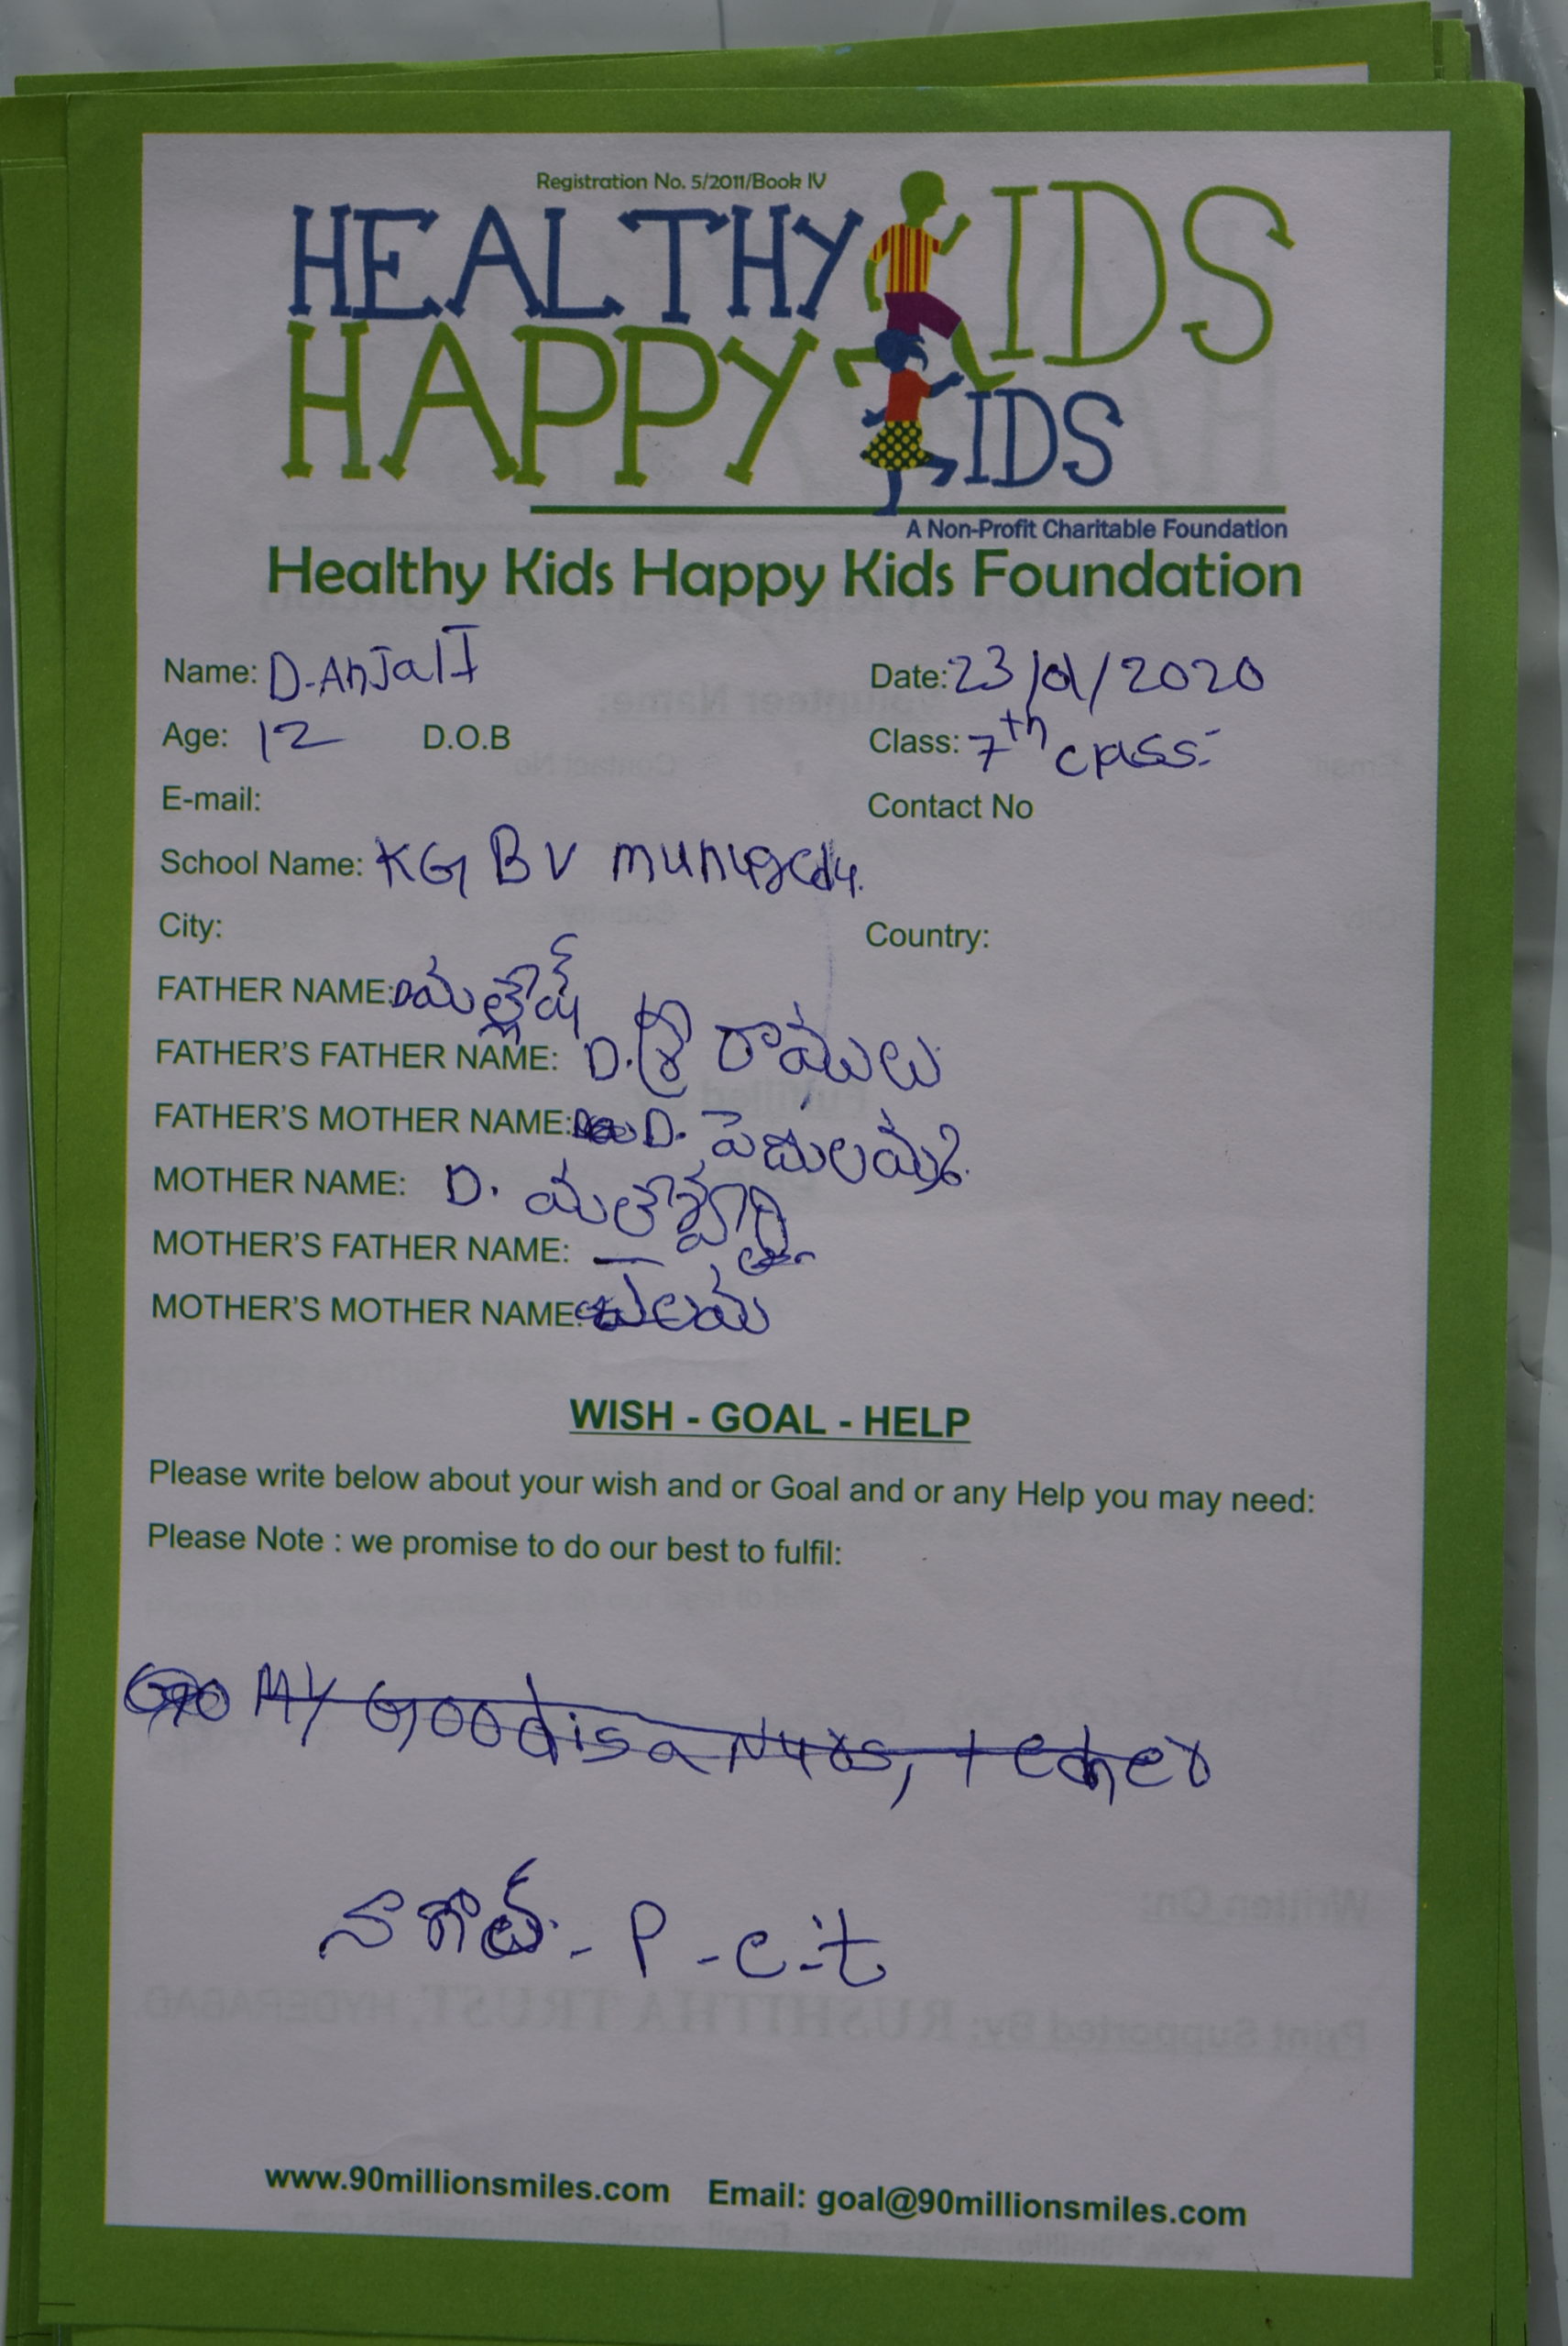 Registration No. 5/2011/Book IV
HEALTHY KIDS
HAPPY KIDS
A Non-Profit Charitable Foundation
Healthy Kids Happy Kids Foundation
Name: D. AnJalI
Date: 23/01/2020
Age: 12 D.O.B
Class: 7th class
E-mail:
Contact No
School Name: KGBV
City:
Country:
FATHER NAME: మల్లేష్
FATHER'S FATHER NAME: D. శ్రీ రాములు
FATHER'S MOTHER NAME: D.
MOTHER NAME: D.
MOTHER'S FATHER NAME: —
MOTHER'S MOTHER NAME:
WISH - GOAL - HELP
Please write below about your wish and or Goal and or any Help you may need:
Please Note : we promise to do our best to fulfil:
My Good is a Nurs, techer
నా గోల్ - P - e - t
www.90millionsmiles.com Email: goal@90millionsmiles.com